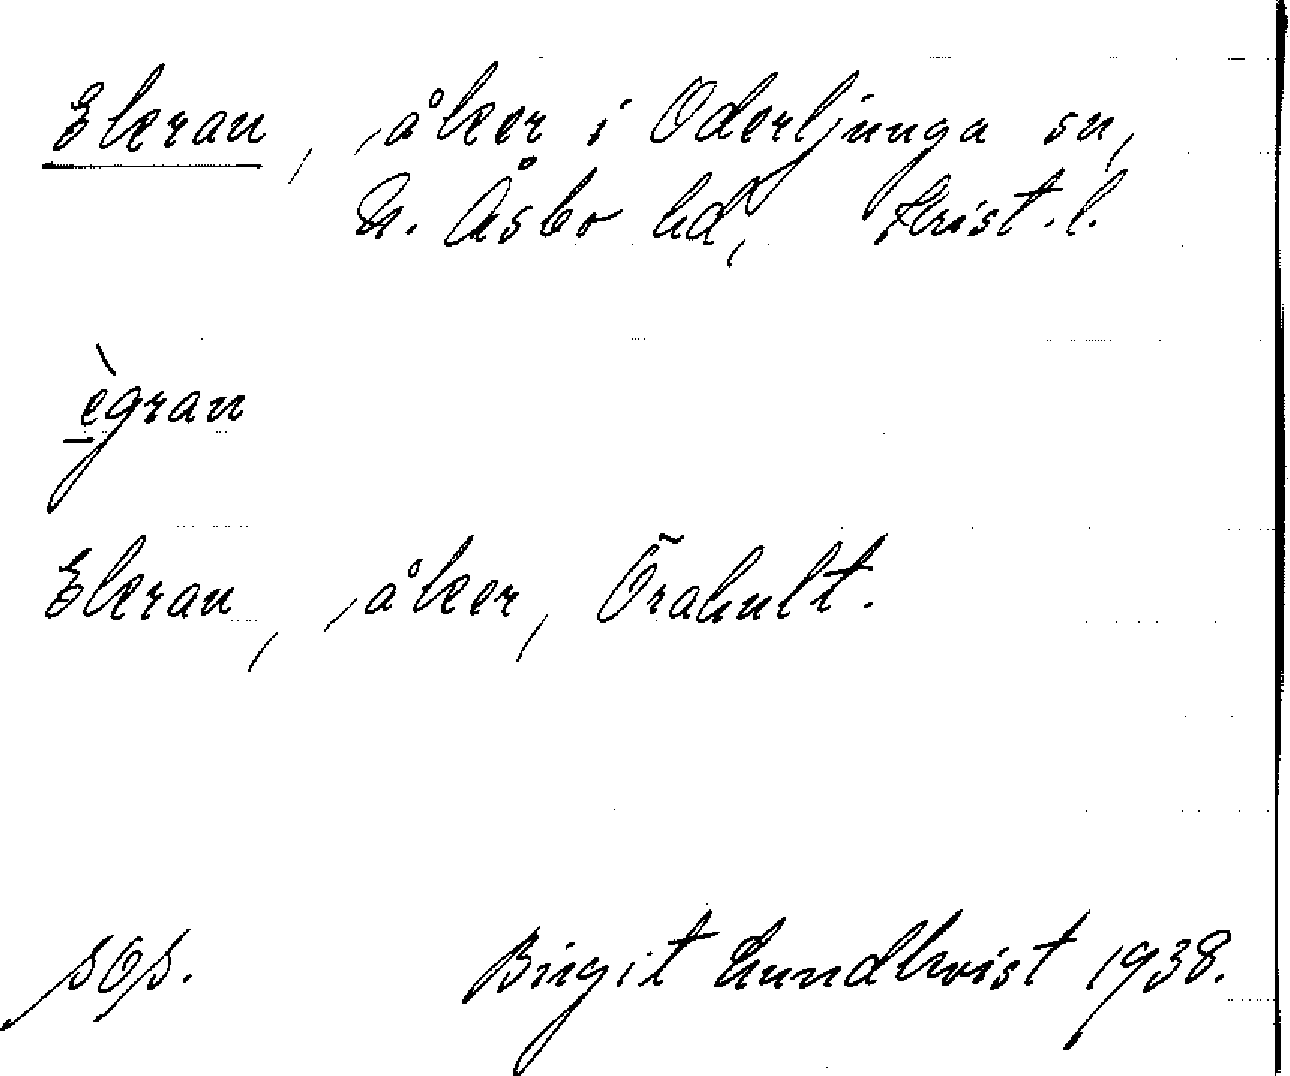 Ekran, åker i Oderljunga sn,
N. Åsbo hd, Krist. l.
ègran
Ekran, åker, Örahult.
sOs.
Birgit Lundkvist 1938.